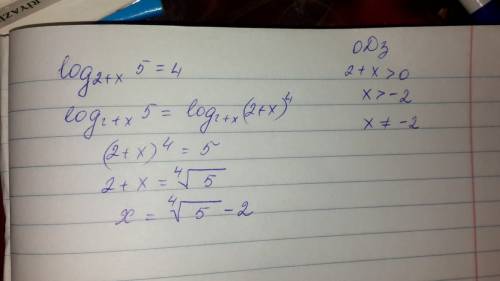 RIYAZI
log₂₊ₓ 5 = 4
log₂₊ₓ 5 = log₂₊ₓ (2+x)⁴
(2+x)⁴ = 5
2 + x = ⁴√5
x = ⁴√5 - 2
ОДЗ
2 + x > 0
x > -2
x ≠ -2